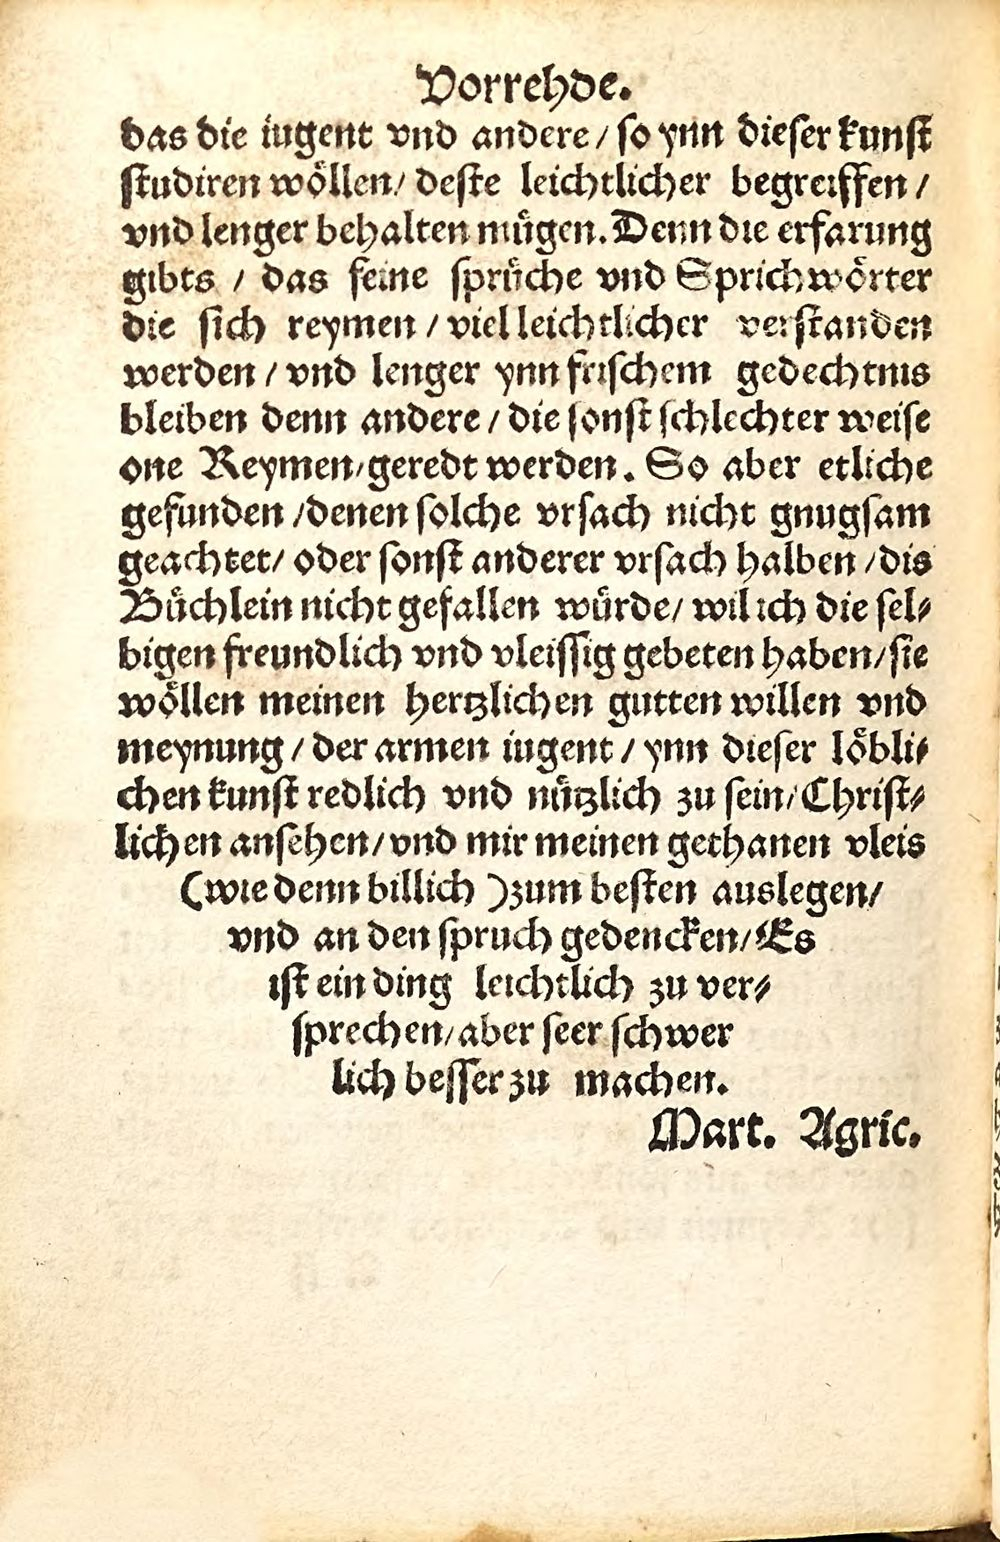 Vorrehde.
das die iugent vnd andere / so ynn dieser kunst
studiren wöllen / deste leichtlicher begreiffen /
vnd lenger behalten mügen. Denn die erfarung
gibts / das feine sprüche vnd Sprichwörter
die sich reymen / viel leichtlicher verstanden
werden / vnd lenger ynn frischem gedechtnis
bleiben denn andere / die sonst schlechter weise
one Reymen / geredt werden. So aber etliche
gefunden / denen solche vrsach nicht gnugsam
geachtet / oder sonst anderer vrsach halben / dis
Büchlein nicht gefallen würde / wil ich die sel⸗
bigen freundlich vnd vleissig gebeten haben / sie
wöllen meinen hertzlichen gutten willen vnd
meynung / der armen iugent / ynn dieser löbli⸗
chen kunst redlich vnd nützlich zu sein / Christ⸗
lichen ansehen / vnd mir meinen gethanen vleis
(wie denn billich ) zum besten auslegen /
vnd an den spruch gedencken / Es
ist ein ding leichtlich zu ver⸗
sprechen / aber seer schwer
lich besser zu machen.
Mart. Agric.